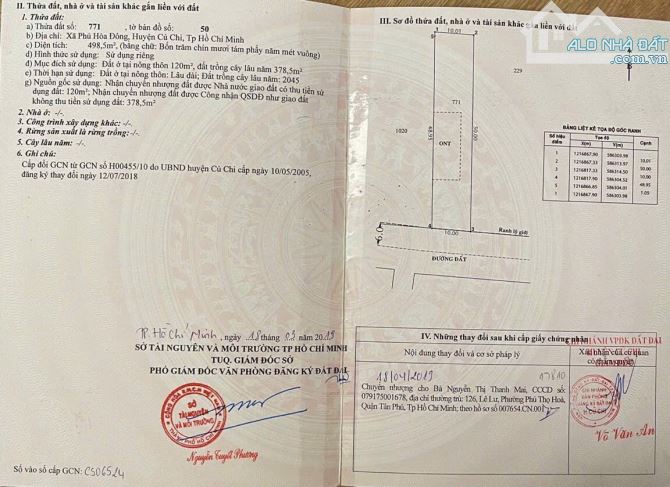 II. Thửa đất, nhà ở và tài sản khác gắn liền với đất
1. Thửa đất:
a) Thửa đất số: 771 , tờ bản đồ số: 50
b) Địa chỉ: Xã Phú Hòa Đông, Huyện Củ Chi, Tp Hồ Chí Minh
c) Diện tích: 498,5m² (bằng chữ: Bốn trăm chín mươi tám phẩy năm mét vuông)
d) Hình thức sử dụng: Sử dụng riêng
đ) Mục đích sử dụng: Đất ở tại nông thôn 120m², đất trồng cây lâu năm 378,5m²
e) Thời hạn sử dụng: Đất ở tại nông thôn: Lâu dài; Đất trồng cây lâu năm: 2045
g) Nguồn gốc sử dụng: Nhận chuyển nhượng đất được Nhà nước giao đất có thu tiền sử
dụng đất: 120m²; Nhận chuyển nhượng đất được Công nhận QSDĐ như giao đất
không thu tiền sử dụng đất: 378,5m²
2. Nhà ở: -/-
3. Công trình xây dựng khác: -/-
4. Rừng sản xuất là rừng trồng: -/-
5. Cây lâu năm: -/-
6. Ghi chú:
Cấp đổi GCN từ GCN số H00455/10 do UBND huyện Củ Chi cấp ngày 10/05/2005,
đăng ký thay đổi ngày 12/07/2018
TP. Hồ Chí Minh, ngày 18 tháng 02 năm 2019
SỞ TÀI NGUYÊN VÀ MÔI TRƯỜNG TP HỒ CHÍ MINH
TUQ. GIÁM ĐỐC SỞ
PHÓ GIÁM ĐỐC VĂN PHÒNG ĐĂNG KÝ ĐẤT ĐAI
SỞ
TÀI NGUYÊN
VÀ MÔI TRƯỜNG
Nguyễn Tuyết Phương
Số vào sổ cấp GCN: CS06524
III. Sơ đồ thửa đất, nhà ở và tài sản khác gắn liền với đất
ALO NHÀ ĐẤT
.com.vn
10,01
229
771
1020
48.95
50.00
ONT
1
2
3
4
10.00
Ranh lộ giới
ĐƯỜNG ĐẤT
BẢNG LIỆT KÊ TỌA ĐỘ GÓC RANH
Số hiệu điểm Tọa độ Cạnh
X(m) Y(m)
1 1216867.90 586303.98
2 1216867.33 586313.97 10.01
3 1216817.33 586314.50 50.00
4 1216817.30 586304.52 10.00
5 1216866.85 586304.01 48.95
1 1216867.90 586303.98 1.05
IV. Những thay đổi sau khi cấp giấy chứng nhận
Nội dung thay đổi và cơ sở pháp lý
Xác nhận của cơ quan
có thẩm quyền
CHI NHÁNH VPĐK ĐẤT ĐAI
18/04/2019
07810
Chuyển nhượng cho Bà Nguyễn Thị Thanh Mai, CCCD số:
079175001678, địa chỉ thường trú: 126, Lê Lư, Phường Phú Thọ Hoà,
Quận Tân Phú, Tp Hồ Chí Minh; theo hồ sơ số 007654.CN.001
CHI NHÁNH
VĂN PHÒNG
ĐĂNG KÝ ĐẤT ĐAI
H.CỦ CHI
Võ Văn An